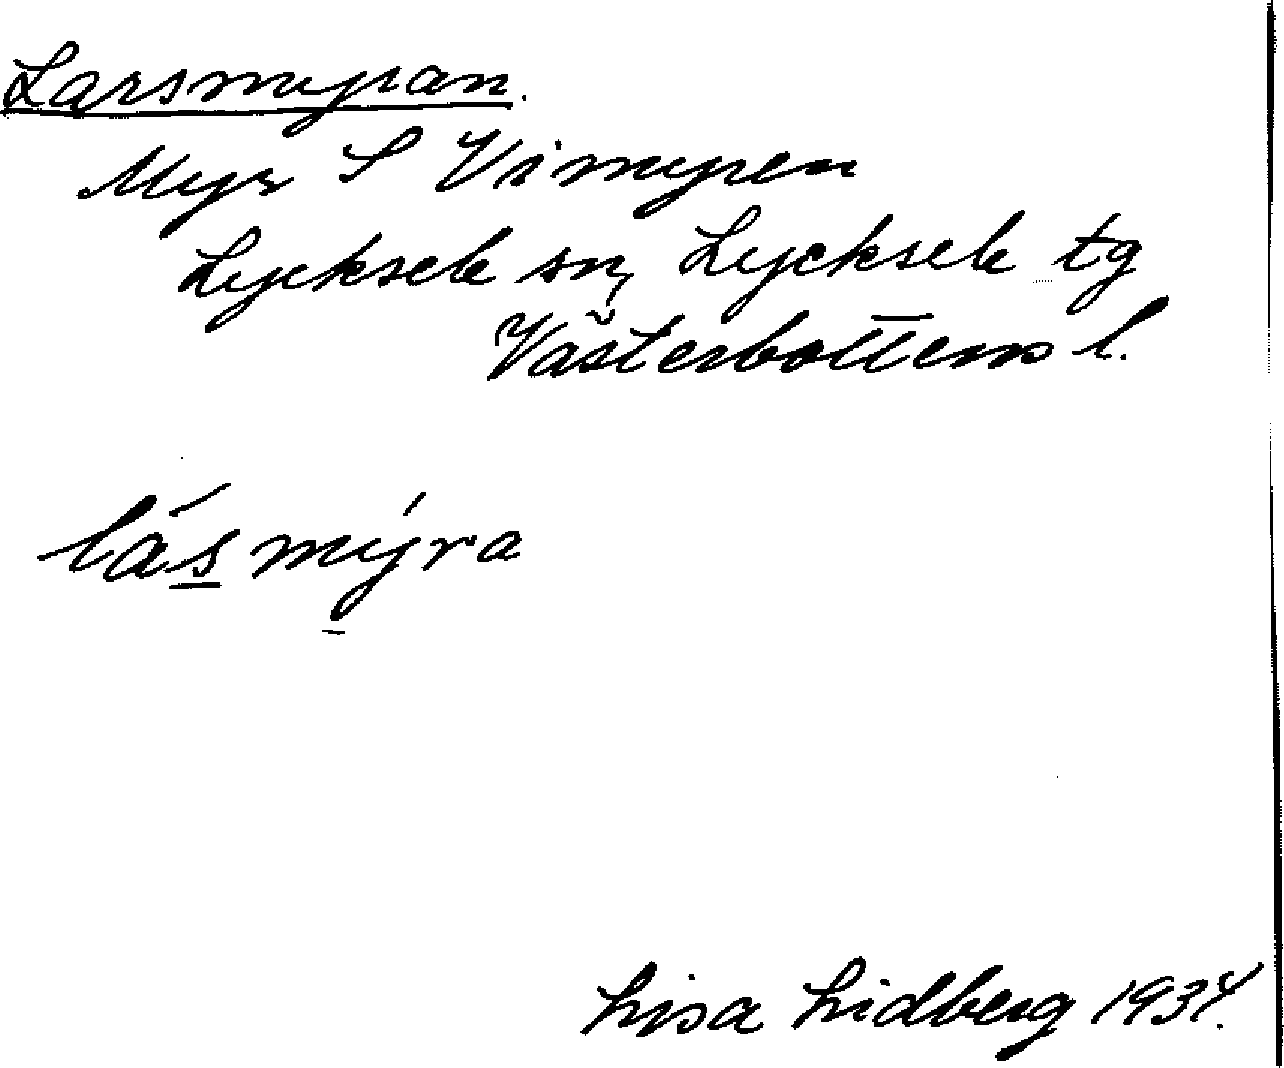 Larsmyran.
Myr S Vimyren
Lycksele sn, Lycksele tg
Västerbottens l.
lásmýra
Lisa Lidberg 1934.